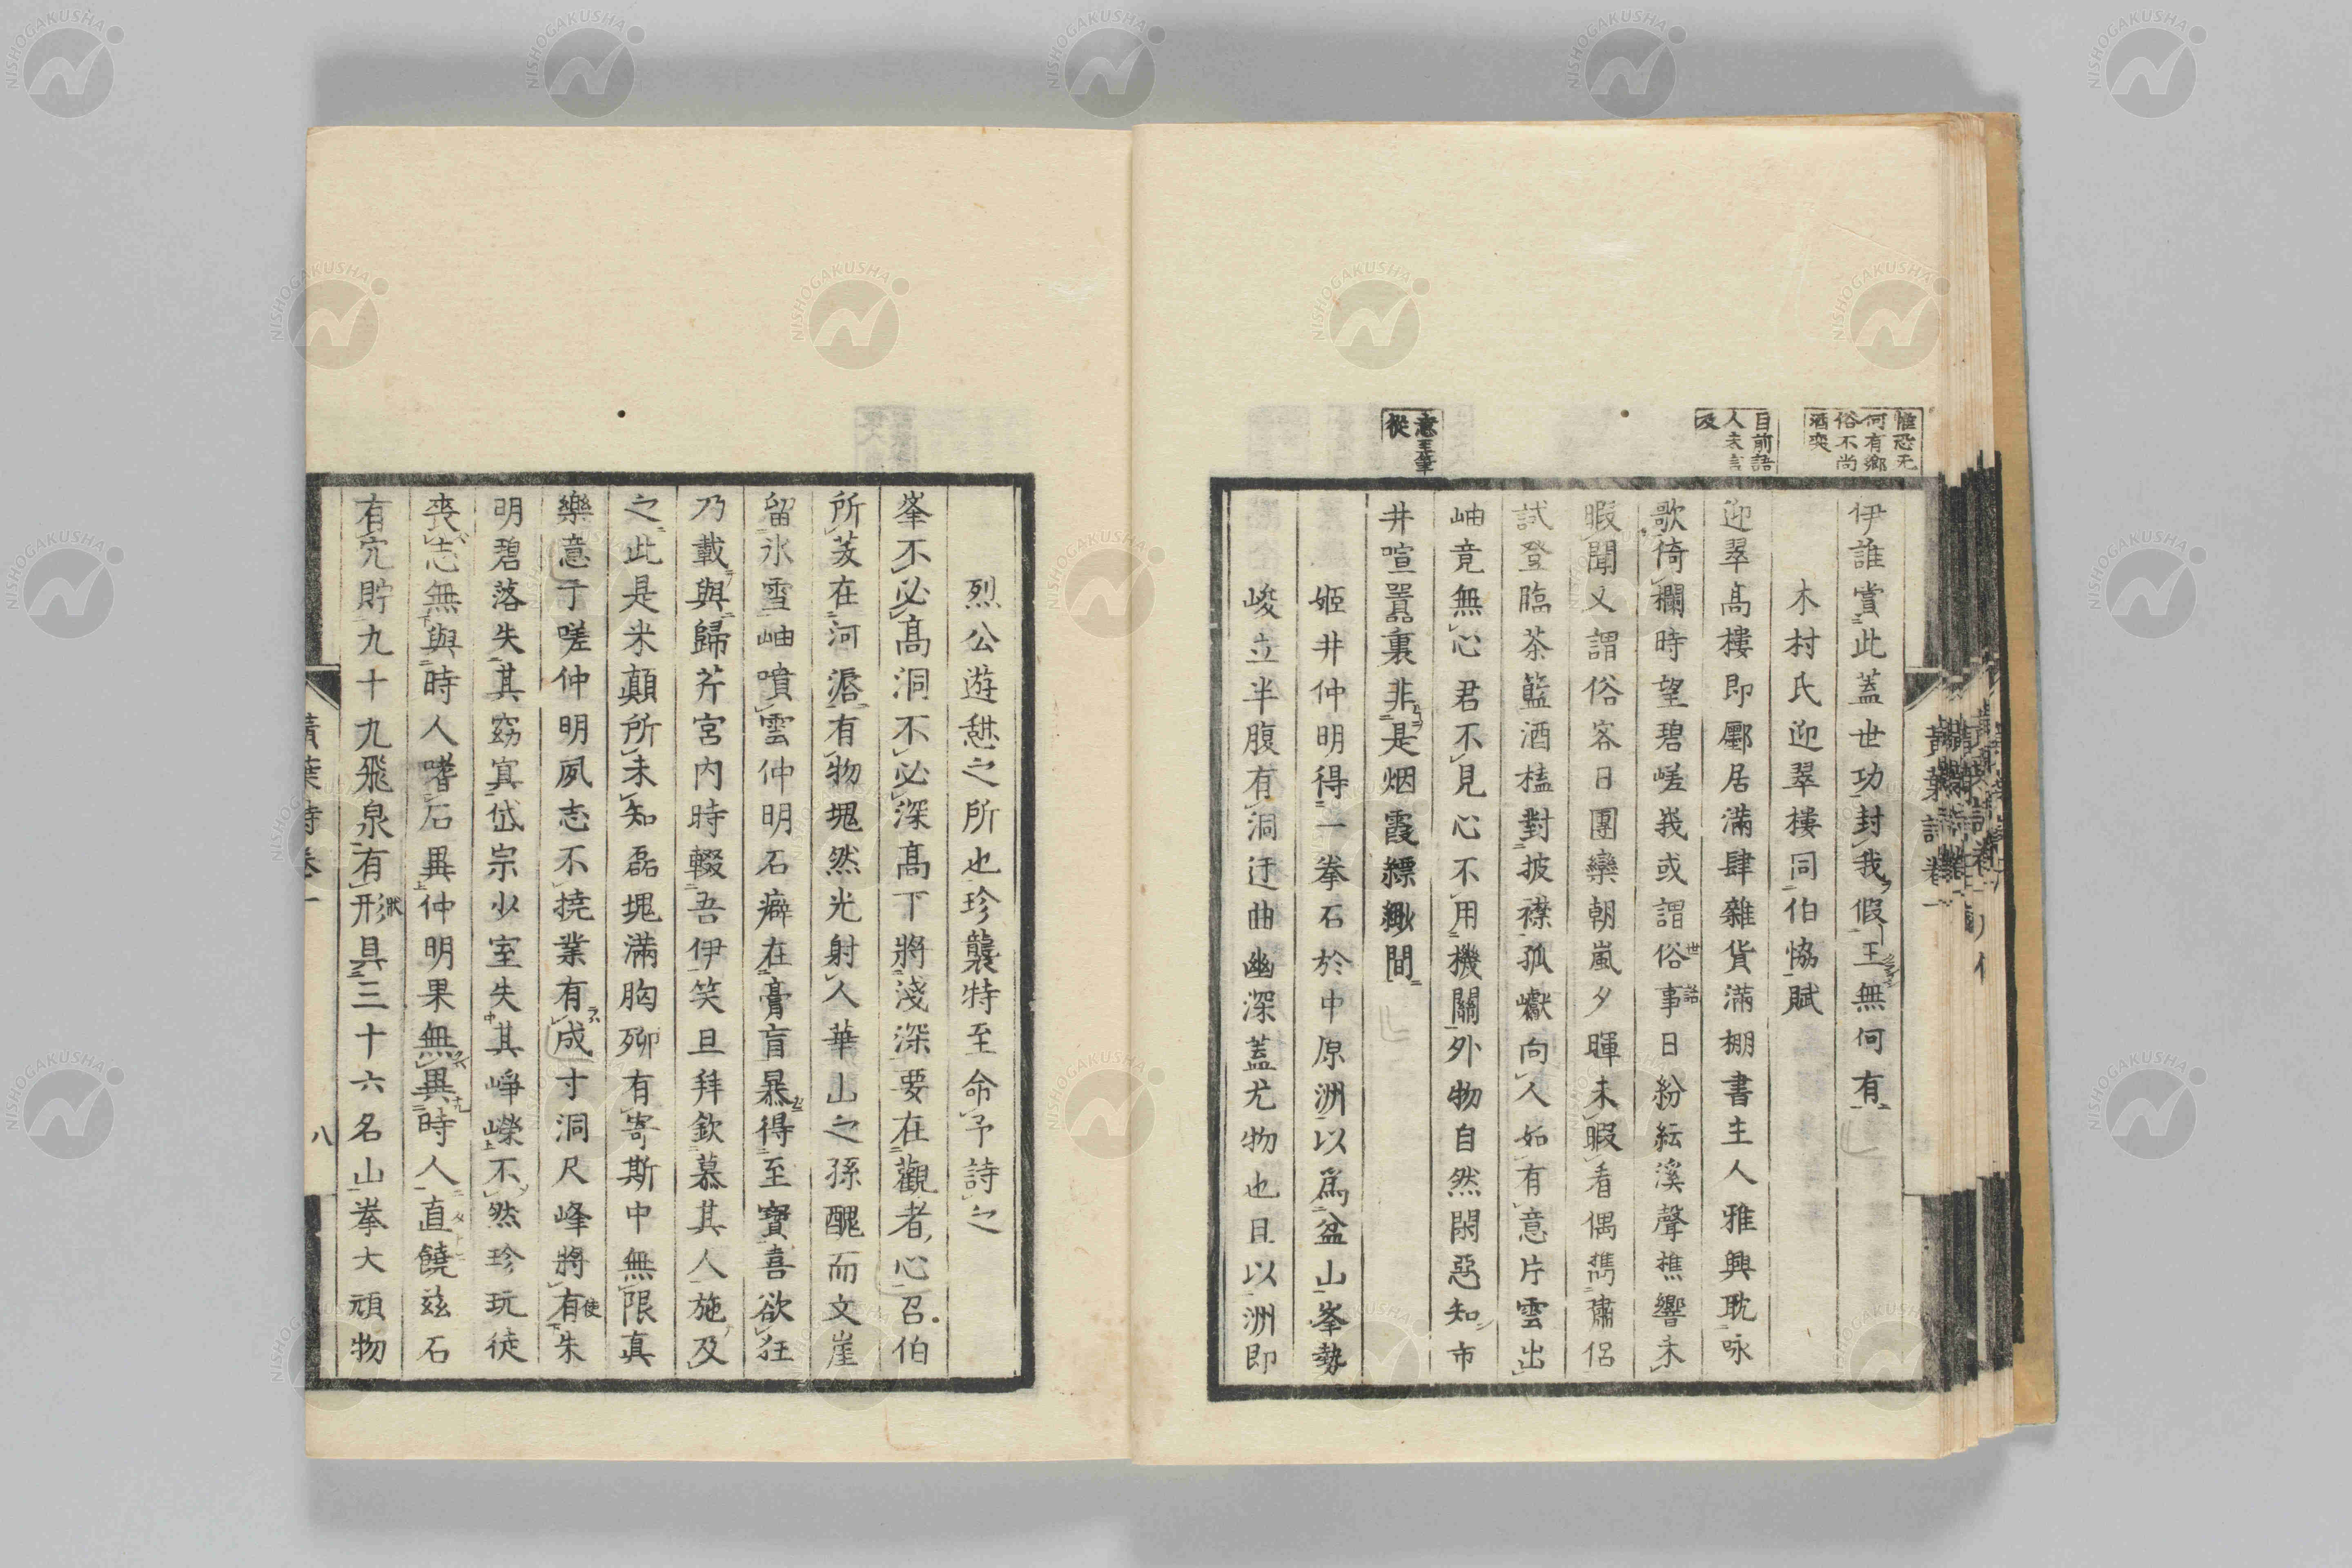 惟恐无
何有鄉
俗不尚
酒爽
目前語
人未言
及
意至筆
從
伊誰賞此蓋世功封我假王無何有
木村氏迎翠樓同伯恊賦
迎翠高樓即郾居滿肆雜貨滿棚書主人雅興耽咏
歌倚欄時望碧嵯峩或謂俗事日紛紜溪聲樵響未
暇聞又謂俗客日團欒朝嵐夕暉未暇看偶攜肅侶
試登臨茶籃酒榼對披襟孤巘向人如有意片雲出
岫竟無心君不見心不用機關外物自然閑惡知市
井喧囂裏非是烟霞縹緲間
姬井仲明得一拳石於中原洲以爲盆山峯勢
峻立半腹有洞迂曲幽深蓋尤物也且以洲即
烈公遊憇之所也珍襲特至命予詩之
峯不必高洞不必深高下將淺深要在觀者心召伯
所茇在河漘有物塊然光射人華山之孫醜而文崖
留氷雪岫噴雲仲明石癖在膏肓暴得至寶喜欲狂
乃載與歸芥宮內時輟吾伊笑且拜欽慕其人施及
之此是米顛所未知磊塊滿胸聊有寄斯中無限真
樂意于嗟仲明夙志不撓業有成寸洞尺峰將有朱
明碧落失其窈窅岱宗少室失其崢嶸不然珍玩徒
喪志無與時人嗜石異仲明果無異時人直饒玆石
有宂貯九十九飛泉有形具三十六名山拳大頑物
黃葉詩卷一
八
NISHOGAKUSHA